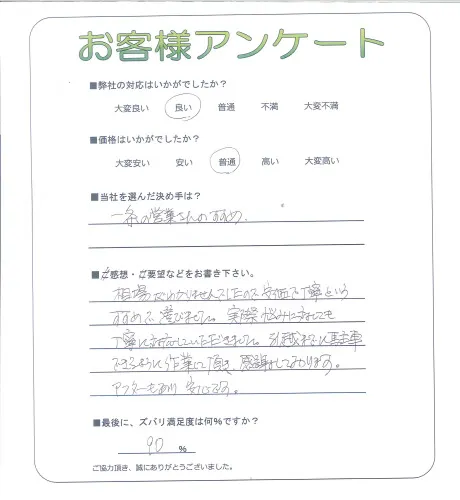 お客様アンケート
■弊社の対応はいかがでしたか？
大変良い 良い 普通 不満 大変不満
■価格はいかがでしたか？
大変安い 安い 普通 高い 大変高い
■当社を選んだ決め手は？
一条の営業さんのすすめ。
■ご感想・ご要望などをお書き下さい。
相場がわかりませんでしたので、安価で丁寧という
すすめで選びました。実際悩みにとても
丁寧に対応していただきました。引越までに駐車
できるように作業して頂き、感謝しております。
アフターもあり 安心です。
■最後に、ズバリ満足度は何%ですか？
90 %
ご協力頂き、誠にありがとうございました。